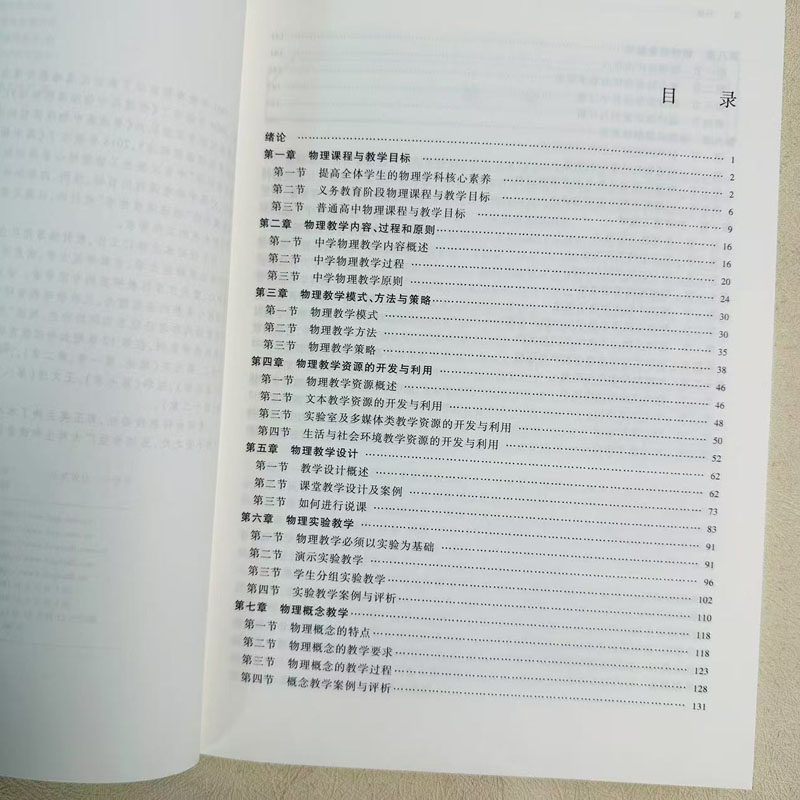 目 录
绪论 …… 1
第一章 物理课程与教学目标 …… 2
第一节 提高全体学生的物理学科核心素养 …… 2
第二节 义务教育阶段物理课程与教学目标 …… 6
第三节 普通高中物理课程与教学目标 …… 9
第二章 物理教学内容、过程和原则 …… 16
第一节 中学物理教学内容概述 …… 16
第二节 中学物理教学过程 …… 20
第三节 中学物理教学原则 …… 24
第三章 物理教学模式、方法与策略 …… 30
第一节 物理教学模式 …… 30
第二节 物理教学方法 …… 35
第三节 物理教学策略 …… 38
第四章 物理教学资源的开发与利用 …… 46
第一节 物理教学资源概述 …… 46
第二节 文本教学资源的开发与利用 …… 48
第三节 实验室及多媒体类教学资源的开发与利用 …… 50
第四节 生活与社会环境教学资源的开发与利用 …… 52
第五章 物理教学设计 …… 62
第一节 教学设计概述 …… 62
第二节 课堂教学设计及案例 …… 73
第三节 如何进行说课 …… 83
第六章 物理实验教学 …… 91
第一节 物理教学必须以实验为基础 …… 91
第二节 演示实验教学 …… 96
第三节 学生分组实验教学 …… 102
第四节 实验教学案例与评析 …… 110
第七章 物理概念教学 …… 118
第一节 物理概念的特点 …… 118
第二节 物理概念的教学要求 …… 123
第三节 物理概念的教学过程 …… 128
第四节 概念教学案例与评析 …… 131